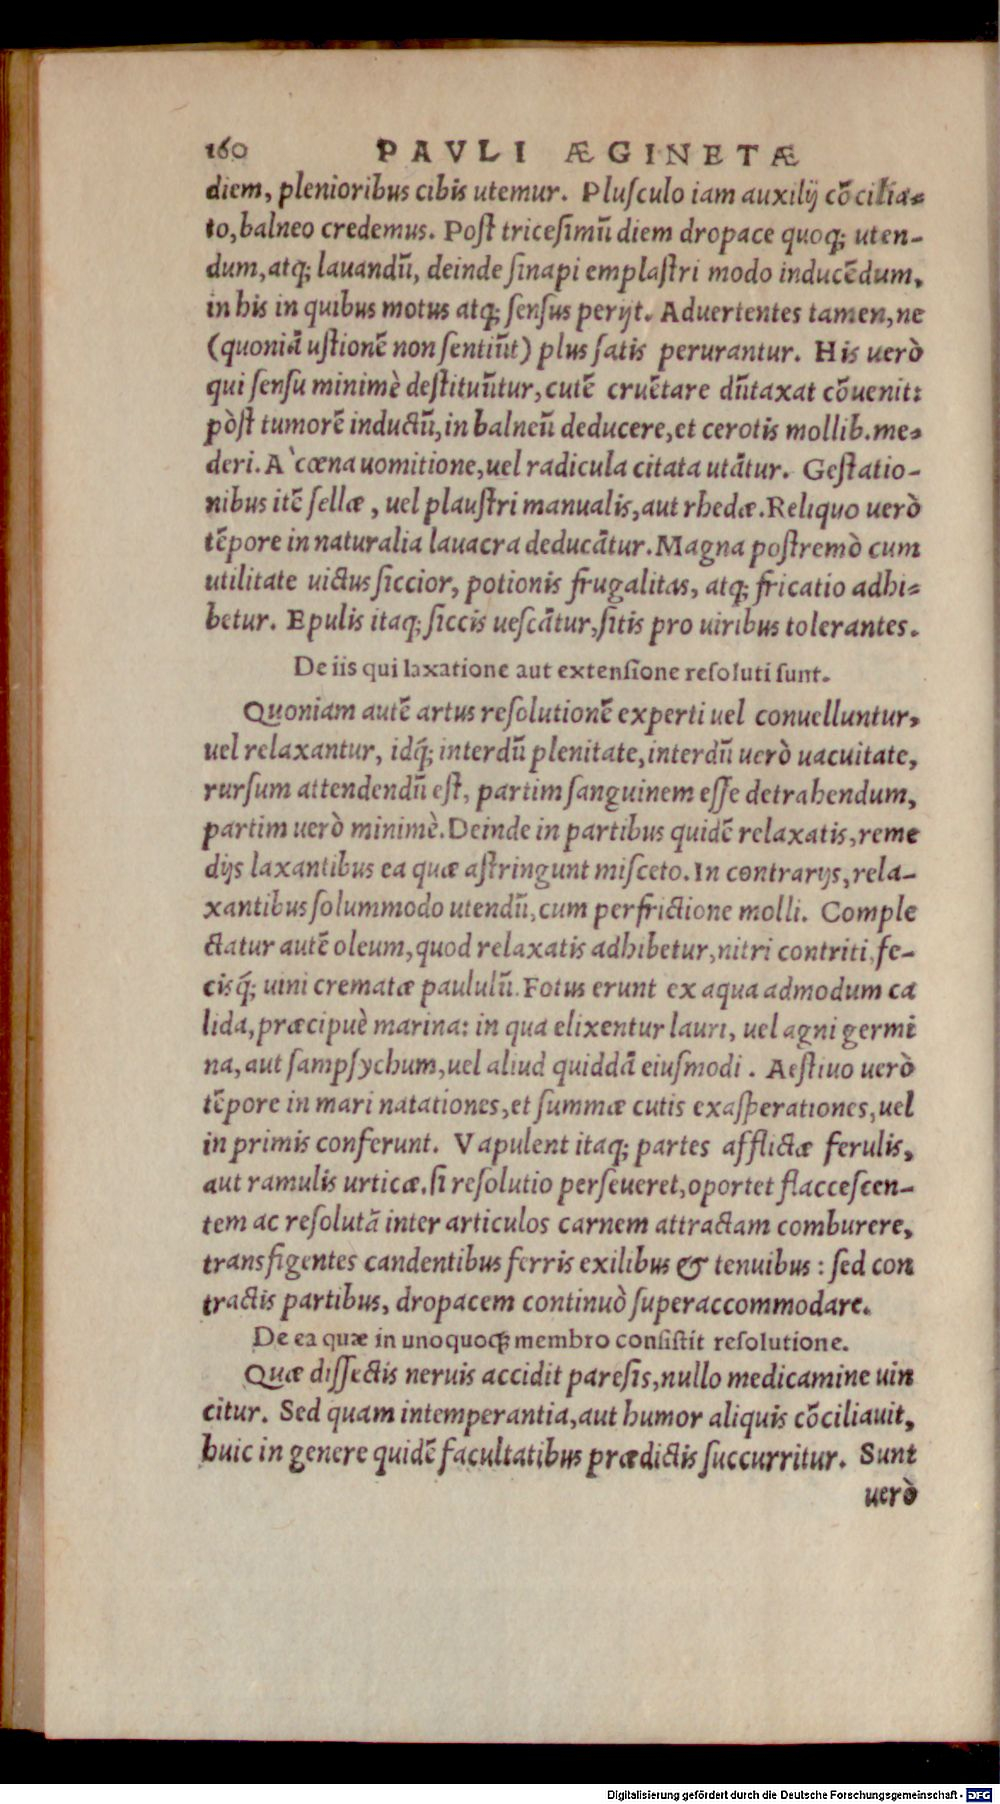 160 PAVLI ÆGINETÆ
diem, plenioribus cibis utemur. Pluſculo iam auxilij cōcilia-
to, balneo credemus. Poſt triceſimū diem dropace quoq; uten-
dum, atq; lauandū, deinde ſinapi emplaſtri modo inducēdum,
in his in quibus motus atq; ſenſus perijt. Aduertentes tamen, ne
(quoniā uſtionē non ſentiūt) plus ſatis perurantur. His uerò
qui ſenſu minimè deſtituūtur, cutē cruētare dūtaxat cōuenit:
pòſt tumorē inductū, in balneū deducere, et cerotis mollib. me-
deri. A' cœna uomitione, uel radicula citata utātur. Geſtatio-
nibus itē ſellæ, uel plauſtri manualis, aut rhedæ. Reliquo uerò
tēpore in naturalia lauacra deducātur. Magna poſtremò cum
utilitate uictus ſiccior, potionis frugalitas, atq; fricatio adhi-
betur. Epulis itaq; ſiccis ueſcātur, ſitis pro uiribus tolerantes.
De iis qui laxatione aut extenſione reſoluti ſunt.
Quoniam autē artus reſolutionē experti uel conuelluntur,
uel relaxantur, idq́; interdū plenitate, interdū uerò uacuitate,
rurſum attendendū eſt, partim ſanguinem eſſe detrahendum,
partim uerò minimè. Deinde in partibus quidē relaxatis, reme
dijs laxantibus ea quæ aſtringunt miſceto. In contrarijs, rela-
xantibus ſolummodo utendū, cum perfrictione molli. Comple
ctatur autē oleum, quod relaxatis adhibetur, nitri contriti, fe-
cisq́; uini crematæ paululū. Fotus erunt ex aqua admodum ca
lida, præcipuè marina: in qua elixentur lauri, uel agni germi
na, aut ſampſychum, uel aliud quiddā eiuſmodi. Aeſtiuo uerò
tēpore in mari natationes, et ſummæ cutis exaſperationes, uel
in primis conferunt. Vapulent itaq; partes afflictæ ferulis,
aut ramulis urticæ. ſi reſolutio perſeueret, oportet flacceſcen-
tem ac reſolutā inter articulos carnem attractam comburere,
transfigentes candentibus ferris exilibus & tenuibus: ſed con
tractis partibus, dropacem continuò ſuperaccommodare.
De ea quæ in unoquoq; membro conſiſtit reſolutione.
Quæ diſſectis neruis accidit pareſis, nullo medicamine uin
citur. Sed quam intemperantia, aut humor aliquis cōciliauit,
huic in genere quidē facultatibus prædictis ſuccurritur. Sunt
uerò
Digitalisierung gefördert durch die Deutsche Forschungsgemeinschaft - DFG